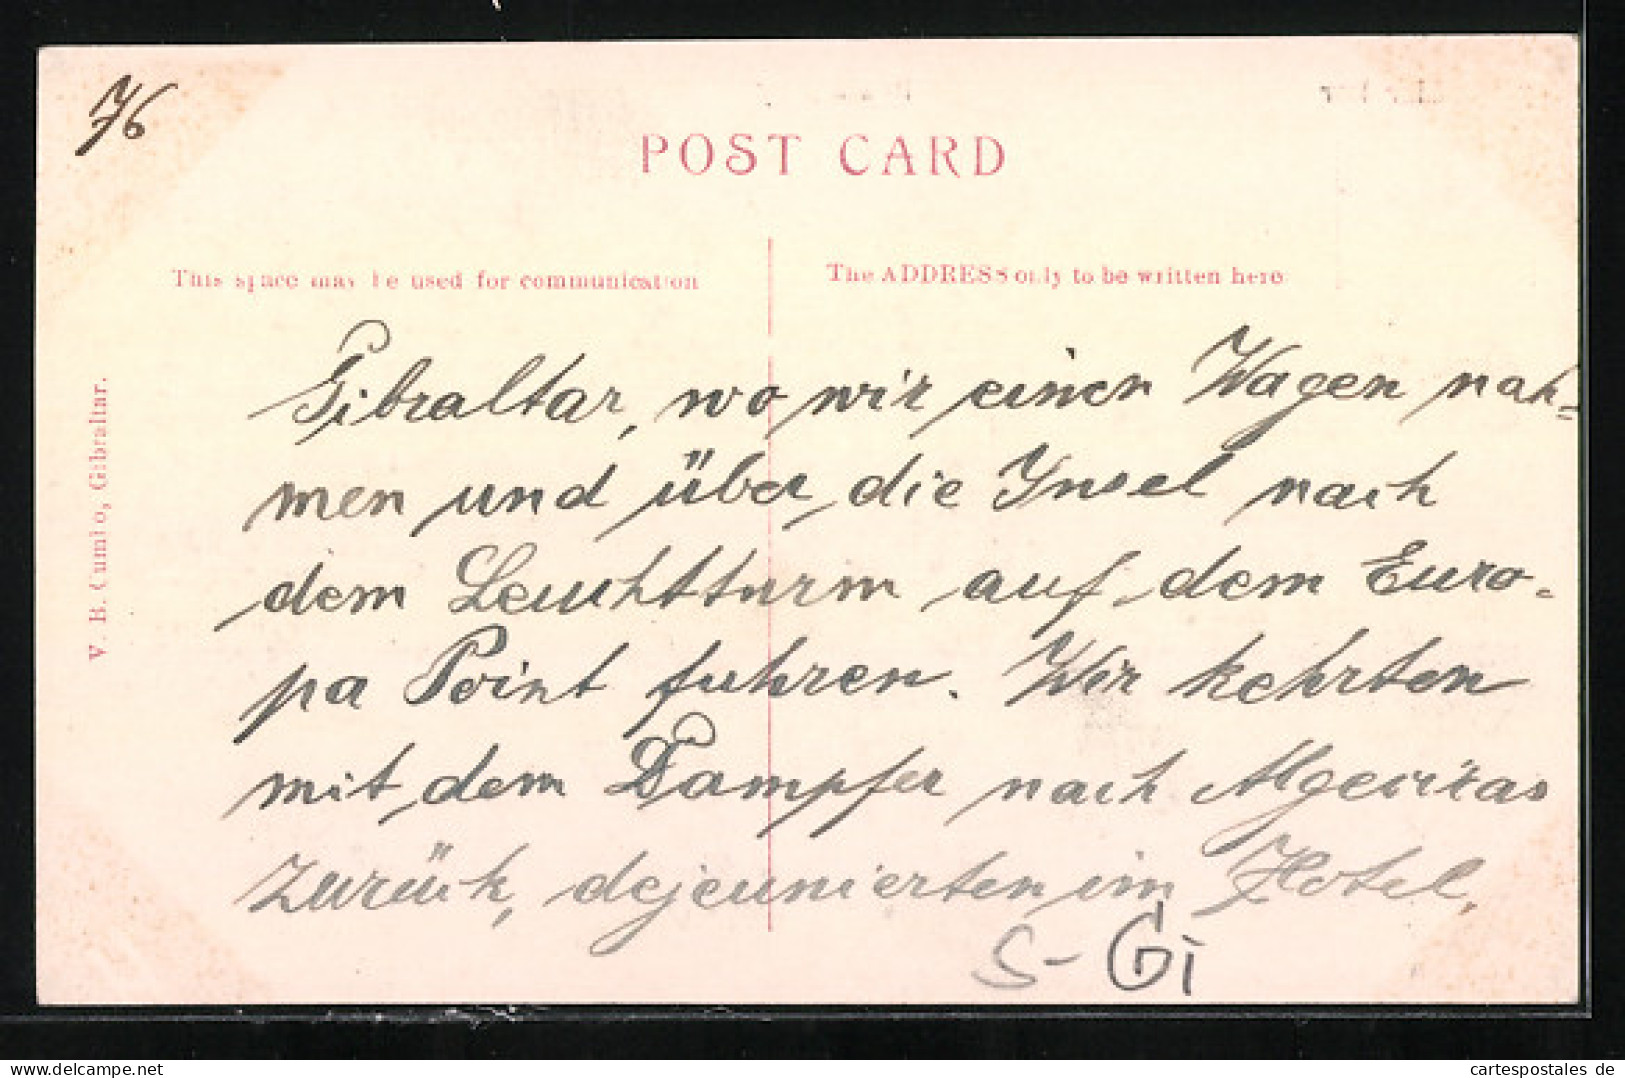 76
POST CARD
This space may be used for communication
The ADDRESS only to be written here
V. B. Cumbo, Gibraltar.
Gibraltar, wo wir einen Wagen nah=
men und über die Insel nach
dem Leuchtturm auf dem Euro-
pa Point fuhren. Wir kehrten
mit dem Dampfer nach Algeciras
zurück, dejeunierten im Hotel,
S- Gi
cartespostales de